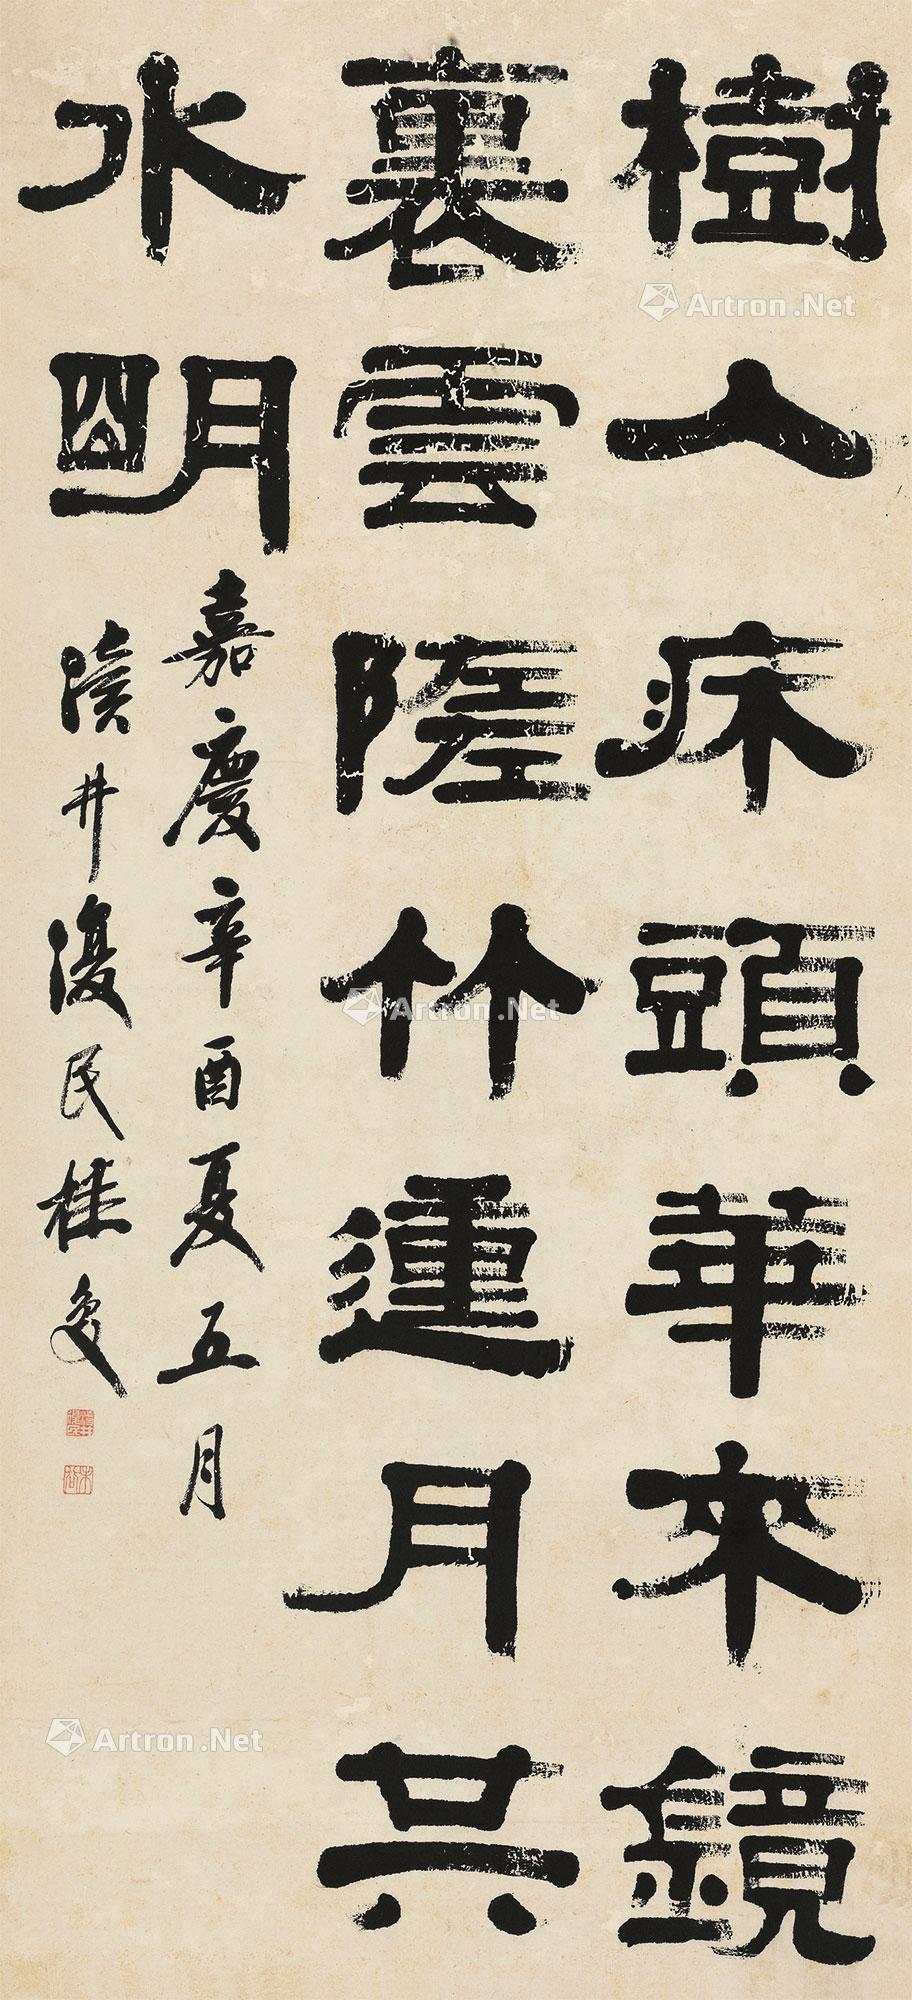 樹入床頭華來鏡
裏雲隨竹動月共
水朙
嘉慶辛酉夏五月
瀆井復民桂馥
瀆井復民
未谷
Artron.Net
Artron.Net
Artron.Net